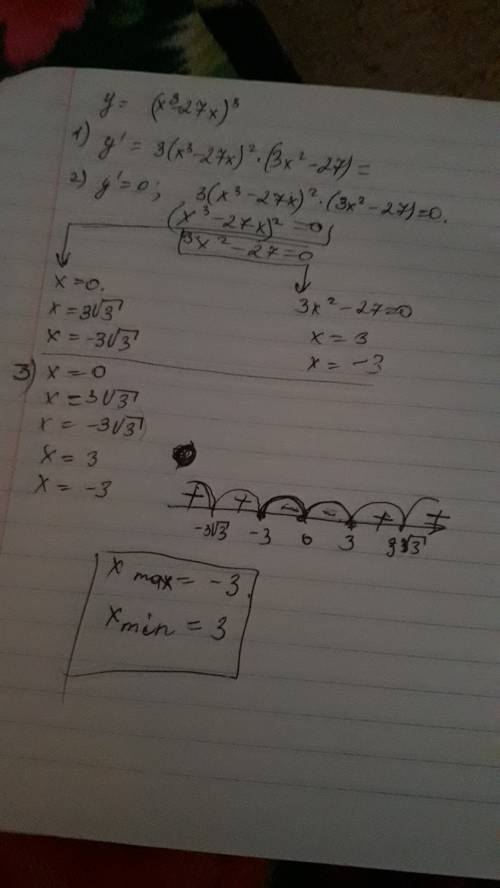 y = (x³-27x)³
1) y' = 3(x³-27x)²·(3x²-27)=
2) y'=0; 3(x³-27x)²·(3x²-27)=0.
(x³-27x)²=0
3x²-27=0
x=0.
x=3√3
x=-3√3
3x²-27=0
x=3
x=-3
3) x=0
x=3√3
x=-3√3
x=3
x=-3
+ + - - + +
-3√3 -3 0 3 3√3
x max = -3.
x min = 3